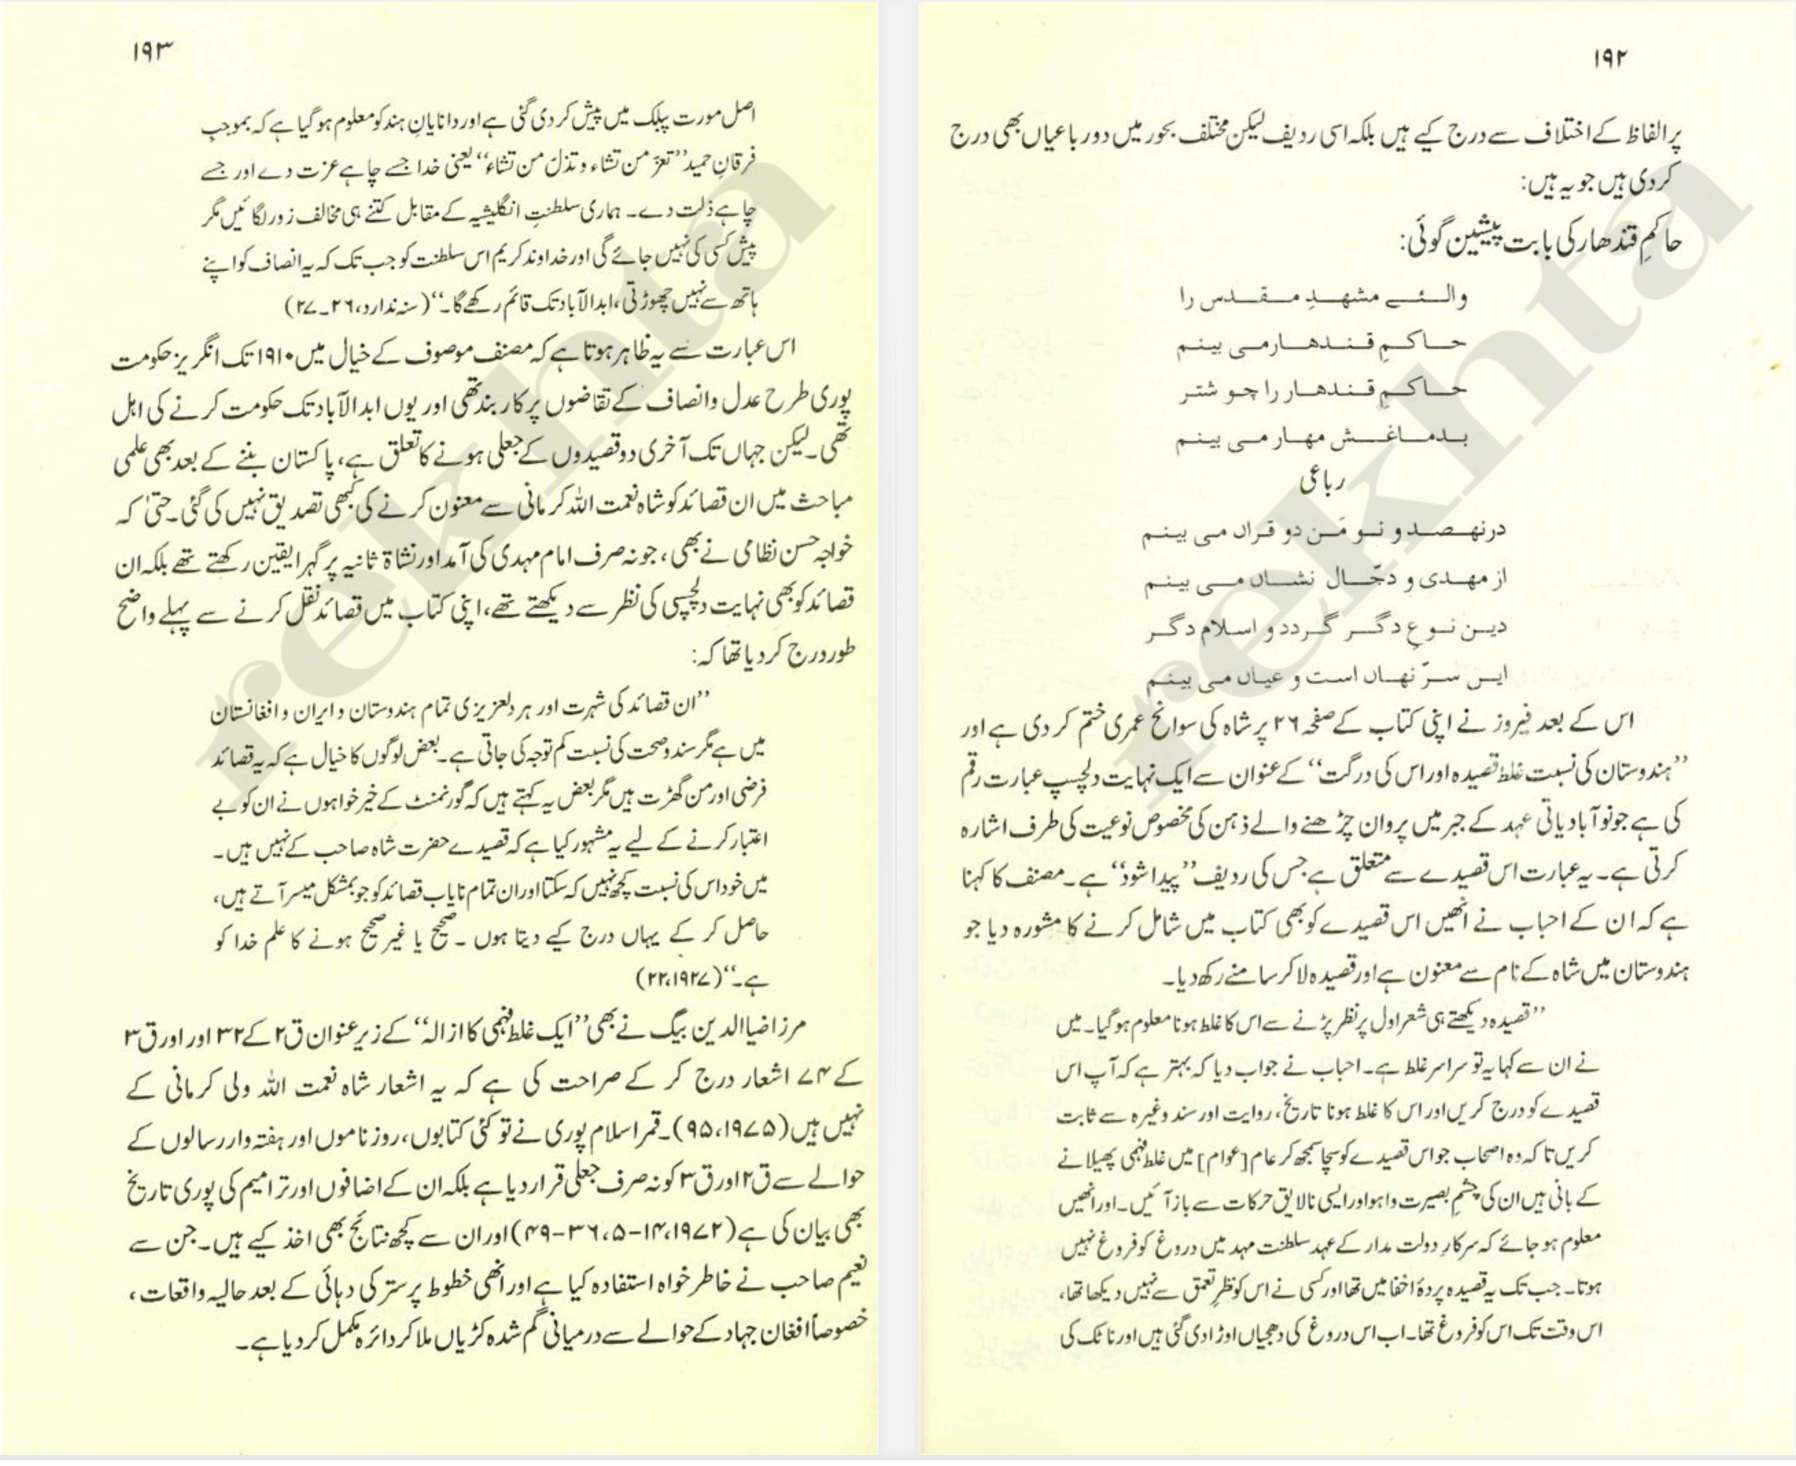 ۱۹۲
پر الفاظ کے اختلاف سے درج کیے ہیں بلکہ اسی ردیف لیکن مختلف بحور میں دو رباعیاں بھی درج
کردی ہیں جو یہ ہیں:
حاکمِ قندھار کی بابت پیشین گوئی:
والئے مشہدِ مقدس را
حاکمِ قندھار می بینم
حاکمِ قندھار را چو شتر
بدماغش مہار می بینم
رباعی
درنہصد و نو مَن دو قراں می بینم
از مہدی و دجّال نشاں می بینم
دین نوعِ دگر گردد و اسلام دگر
ایں سرّ نہاں است و عیاں می بینم
اس کے بعد فیروز نے اپنی کتاب کے صفحہ ۲۶ پر شاہ کی سوانح عمری ختم کر دی ہے اور
’’ہندوستان کی نسبت غلط قصیدہ اور اس کی درگت‘‘ کے عنوان سے ایک نہایت دلچسپ عبارت رقم
کی ہے جو نوآبادیاتی عہد کے جبر میں پروان چڑھنے والے ذہن کی مخصوص نوعیت کی طرف اشارہ
کرتی ہے۔ یہ عبارت اس قصیدے سے متعلق ہے جس کی ردیف ’’پیدا شود‘‘ ہے۔ مصنف کا کہنا
ہے کہ ان کے احباب نے انھیں اس قصیدے کو بھی کتاب میں شامل کرنے کا مشورہ دیا جو
ہندوستان میں شاہ کے نام سے معنون ہے اور قصیدہ لا کر سامنے رکھ دیا۔
’’قصیدہ دیکھتے ہی شعر اول پر نظر پڑنے سے اس کا غلط ہونا معلوم ہو گیا۔ میں
نے ان سے کہا یہ تو سراسر غلط ہے۔ احباب نے جواب دیا کہ بہتر ہے کہ آپ اس
قصیدے کو درج کریں اور اس کا غلط ہونا تاریخ، روایت اور سند وغیرہ سے ثابت
کریں تا کہ وہ اصحاب جو اس قصیدے کو سچا سمجھ کر عام [عوام] میں غلط فہمی پھیلانے
کے بانی ہیں ان کی چشمِ بصیرت وا ہو اور ایسی نالایق حرکات سے باز آئیں۔ اور انھیں
معلوم ہو جائے کہ سرکارِ دولت مدار کے عہد سلطنت مہد میں دروغ کو فروغ نہیں
ہوتا۔ جب تک یہ قصیدہ پردۂ اخفا میں تھا اور کسی نے اس کو نظرِ تعمق سے نہیں دیکھا تھا،
اس وقت تک اس کو فروغ تھا۔ اب اس دروغ کی دھجیاں اوڑا دی گئی ہیں اور ناٹک کی
۱۹۳
اصل مورت پبلک میں پیش کر دی گئی ہے اور دانایانِ ہند کو معلوم ہو گیا ہے کہ بموجبِ
فرقانِ حمید ’’تعزّ من تشاء و تذلّ من تشاء‘‘ یعنی خدا جسے چاہے عزت دے اور جسے
چاہے ذلت دے۔ ہماری سلطنتِ انگلیشیہ کے مقابل کتنے ہی مخالف زور لگائیں مگر
پیش کسی کی نہیں جائے گی اور خداوند کریم اس سلطنت کو جب تک کہ یہ انصاف کو اپنے
ہاتھ سے نہیں چھوڑتی، ابدالآباد تک قائم رکھے گا۔‘‘ (سنہ ندارد، ۲۶۔۲۷)
اس عبارت سے یہ ظاہر ہوتا ہے کہ مصنف موصوف کے خیال میں ۱۹۱۰ تک انگریز حکومت
پوری طرح عدل و انصاف کے تقاضوں پر کار بند تھی اور یوں ابدالآباد تک حکومت کرنے کی اہل
تھی۔ لیکن جہاں تک آخری دو قصیدوں کے جعلی ہونے کا تعلق ہے، پاکستان بننے کے بعد بھی علمی
مباحث میں ان قصائد کو شاہ نعمت اللہ کرمانی سے معنون کرنے کی کبھی تصدیق نہیں کی گئی۔ حتیٰ کہ
خواجہ حسن نظامی نے بھی، جو نہ صرف امام مہدی کی آمد اور نشاۃ ثانیہ پر گہرا یقین رکھتے تھے بلکہ ان
قصائد کو بھی نہایت دلچسپی کی نظر سے دیکھتے تھے، اپنی کتاب میں قصائد نقل کرنے سے پہلے واضح
طور درج کر دیا تھا کہ:
’’ان قصائد کی شہرت اور ہر دلعزیزی تمام ہندوستان و ایران و افغانستان
میں ہے مگر سند و صحت کی نسبت کم توجہ کی جاتی ہے۔ بعض لوگوں کا خیال ہے کہ یہ قصائد
فرضی اور من گھڑت ہیں مگر بعض یہ کہتے ہیں کہ گورنمنٹ کے خیر خواہوں نے ان کو بے
اعتبار کرنے کے لیے یہ مشہور کیا ہے کہ قصیدے حضرت شاہ صاحب کے نہیں ہیں۔
میں خود اس کی نسبت کچھ نہیں کہ سکتا اور ان تمام نایاب قصائد کو جو بمشکل میسر آتے ہیں،
حاصل کر کے یہاں درج کیے دیتا ہوں ۔ صحیح یا غیر صحیح ہونے کا علم خدا کو
ہے۔‘‘ (۲۲،۱۹۲۷)
مرزا ضیا الدین بیگ نے بھی ’’ایک غلط فہمی کا ازالہ‘‘ کے زیرِ عنوان ق۲ کے ۳۲ اور اور ق۳
کے ۷۴ اشعار درج کر کے صراحت کی ہے کہ یہ اشعار شاہ نعمت اللہ ولی کرمانی کے
نہیں ہیں (۹۵،۱۹۷۵)۔ قمر اسلام پوری نے تو کئی کتابوں، روزناموں اور ہفتہ وار رسالوں کے
حوالے سے ق۲ اور ق۳ کو نہ صرف جعلی قرار دیا ہے بلکہ ان کے اضافوں اور ترامیم کی پوری تاریخ
بھی بیان کی ہے (۱۹۷۲، ۱۴–۵، ۳۶–۴۹) اور ان سے کچھ نتائج بھی اخذ کیے ہیں۔ جن سے
نعیم صاحب نے خاطر خواہ استفادہ کیا ہے اور انھی خطوط پر ستر کی دہائی کے بعد حالیہ واقعات،
خصوصاً افغان جہاد کے حوالے سے درمیانی گم شدہ کڑیاں ملا کر دائرہ مکمل کر دیا ہے۔
rekhta
rekhta